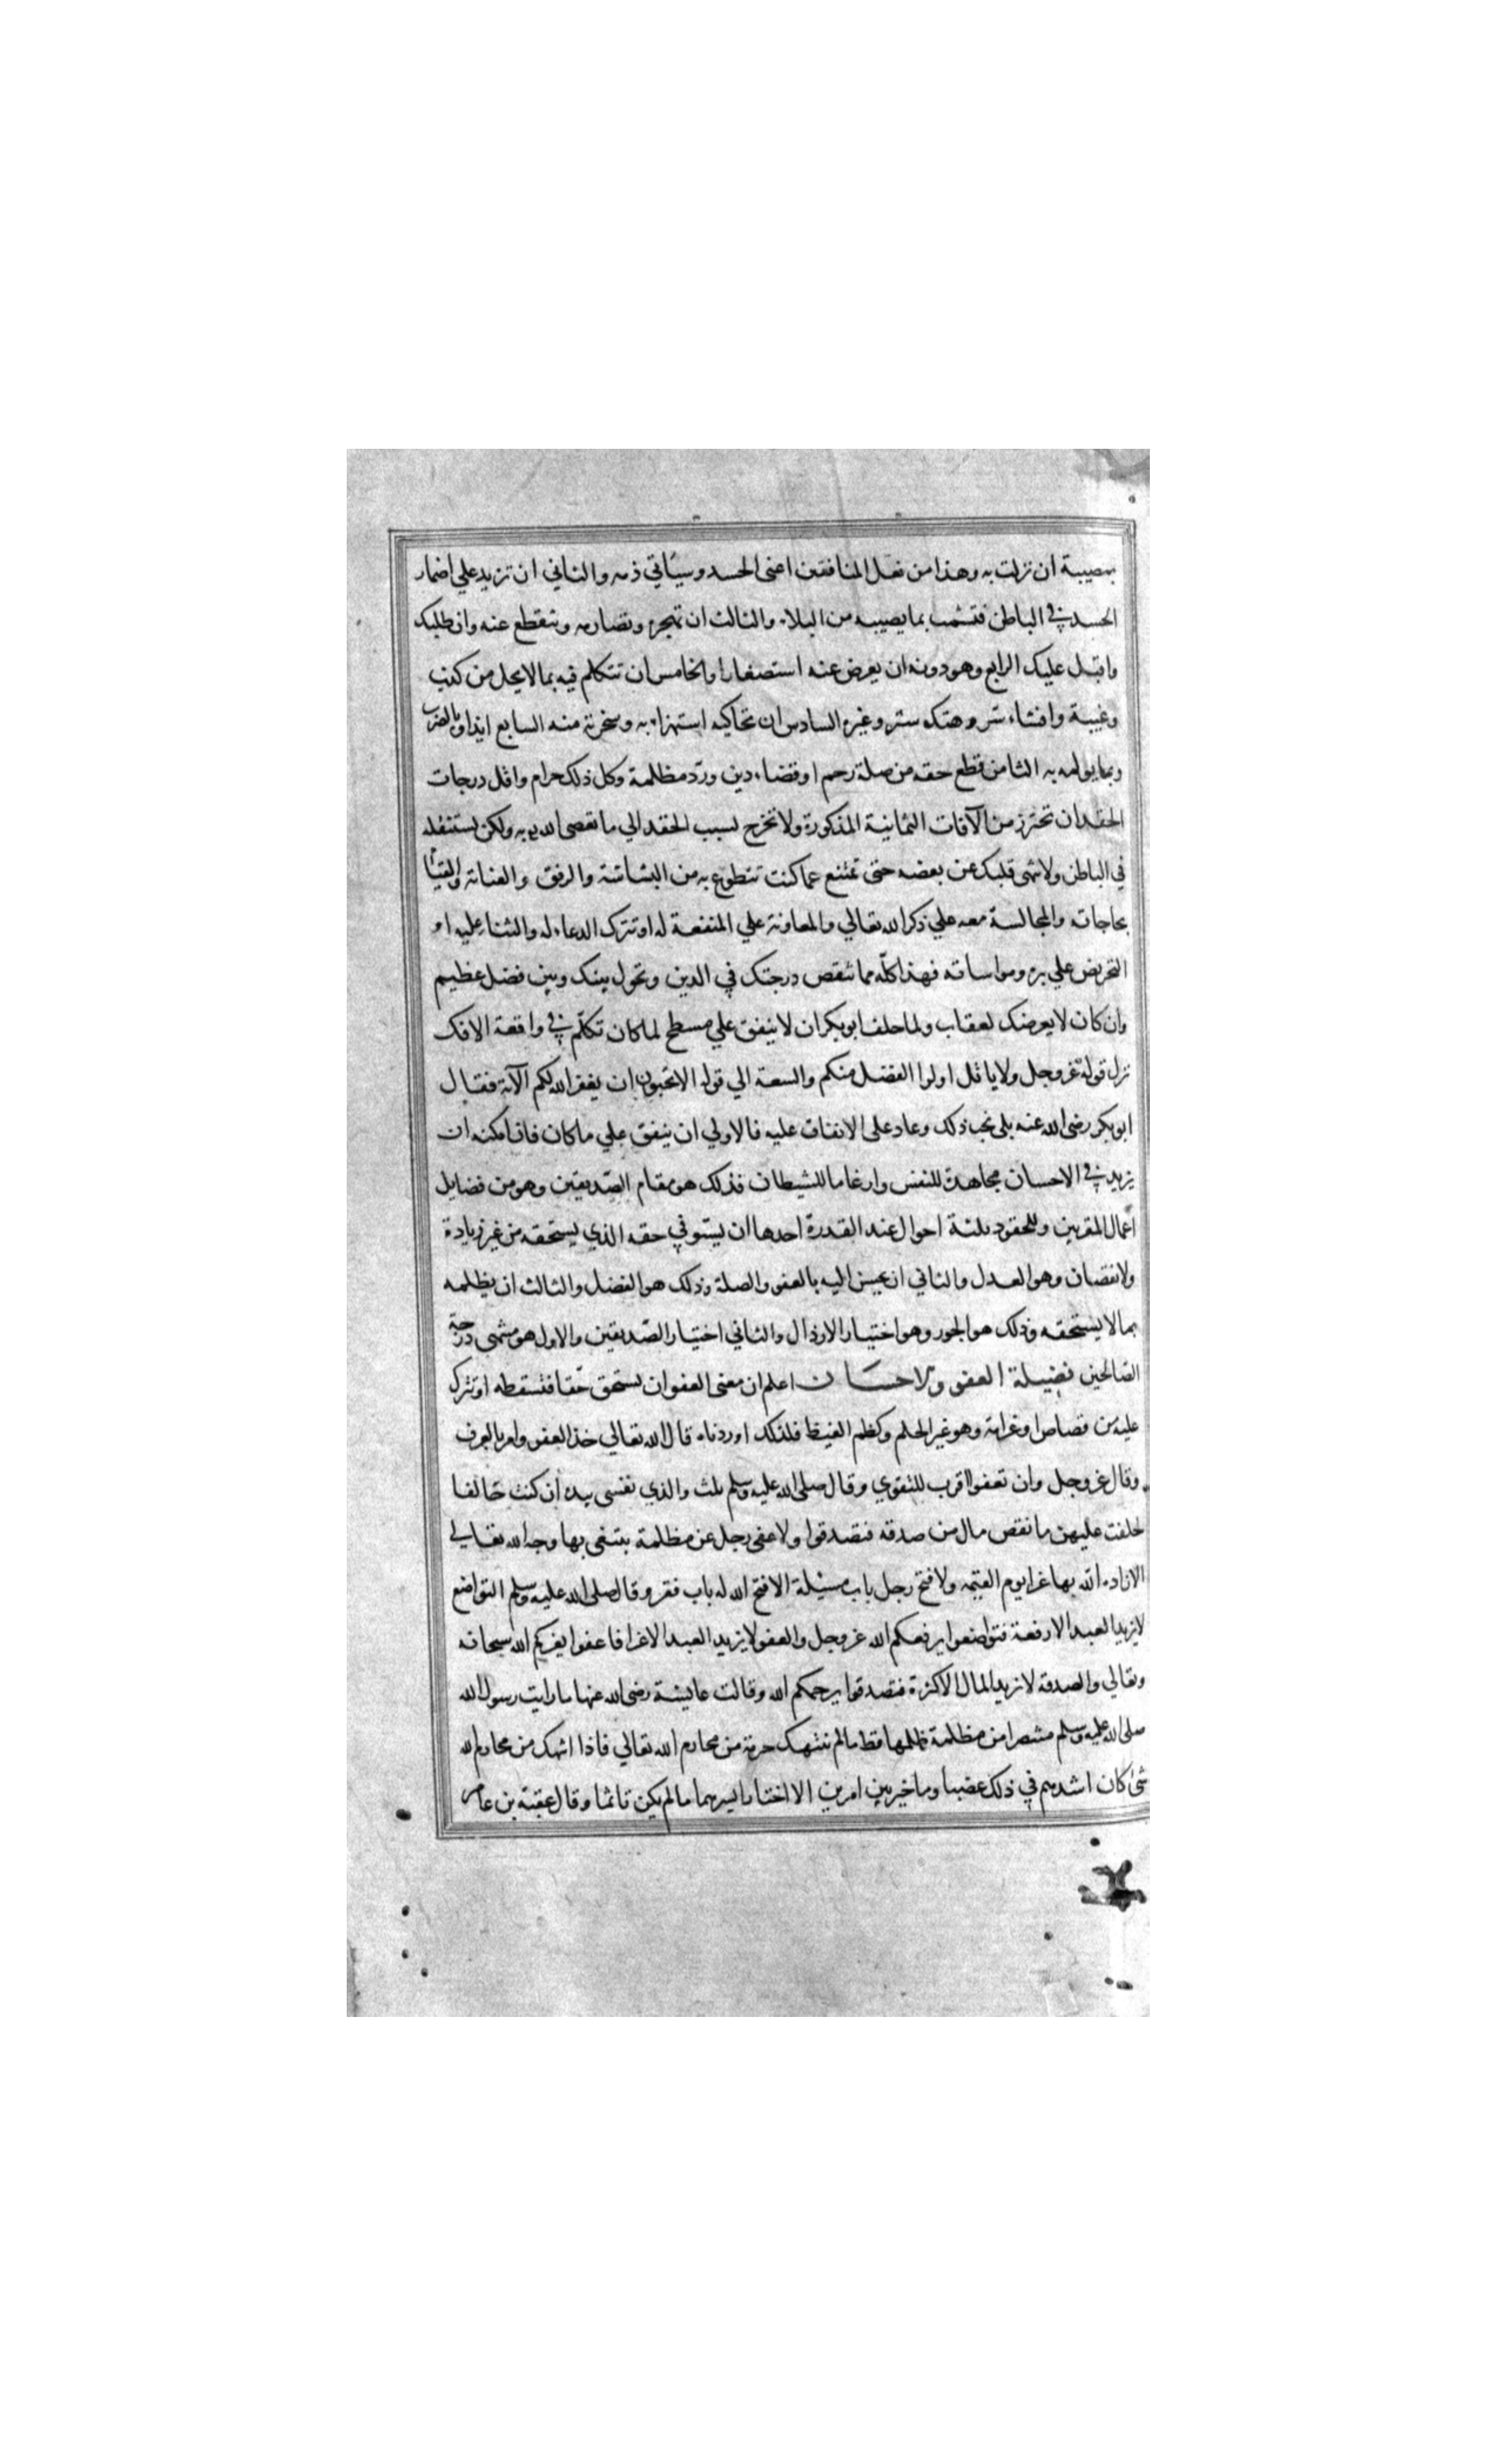 بمصيبة ان نزلت به وهذا من فعل المنافقين اعنى الحسد وسيأتي ذمه والثاني ان تزيد علي اضمار
الحسد في الباطن فتشمت بما يصيبه من البلاء والثالث ان تهجره وتصارمه وتنقطع عنه وان طلبك
واقبل عليك الرابع وهو دونه ان يعرض عنه استصغارا والخامس ان تتكلم فيه بما لا يحل من كذب
وغيبة وافشاء سر وهتك ستر وغيره السادس ان تحاكيه استهزاء به وسخرية منه السابع ايذاوه بالضرب
وبما يولمه به الثامن قطع حقه من صلة رحم او قضاء دين ورد مظلمة وكل ذلك حرام واقل درجات
الحقد ان تحترز من الآفات الثمانية المذكورة ولا تخرج لسبب الحقد الي ما تعصى الله به ولكن تستثقله
في الباطن ولا تنهى قلبك عن بعضه حتى تمتنع عما كنت تتطوع به من البشاشة والرفق والعناية والقيام
بحاجاته والمجالسة معه علي ذكر الله تعالي والمعاونة علي المنفعة له او تترك الدعاء له والثناء عليه او
التحريض علي بره ومواساته فهذا كلّه مما تنقص درجتك في الدين وتحول بينك وبين فضل عظيم
وان كان لا يعرضك لعقاب ولما حلف ابو بكر ان لا ينفق علي مسطح لما كان تكلّم في واقعة الافك
نزل قوله عز وجل ولا ياتل اولوا الفضل منكم والسعة الي قوله الا تحبون ان يغفر الله لكم الآية فقال
ابو بكر رضى الله عنه بلى نحب ذلك وعاد على الانفاق عليه فالاولي ان ينفق علي ما كان فان امكنه ان
يزيد في الاحسان مجاهدة للنفس وارغاما للشيطان فذلك هو مقام الصّديقين وهو من فضايل
اعمال المقربين وللحقود ثلثة احوال عند القدرة احدها ان يستوفي حقه الذي يستحقه من غير زيادة
ولا نقصان وهو العدل والثاني ان يحسن اليه بالعفو والصلة وذلك هو الفضل والثالث ان يظلمه
بما لا يستحقه وذلك هو الجور وهو اختيار الارذال والثاني اختيار الصّديقين والاول هو منتهى درجة
الصّالحين فضيلة العفو والاحسان اعلم ان معنى العفو ان يستحق حقّا فتسقطه او تترك
عليه من قصاص او غرامة وهو غير الحلم وكظم الغيظ فلذلك اوردناه قال الله تعالي خذ العفو وامر بالعرف
وقال عز وجل وان تعفوا اقرب للتقوي وقال صلى الله عليه وسلم ثلث والذي نفسى بيده ان كنت حالفا
لحلفت عليهن ما نقص مال من صدقه فتصدقوا ولا عفى رجل عن مظلمة يبتغى بها وجه الله تعالي
الا زاده الله بها عزا يوم القيمه ولا فتح رجل باب مسئلة الا فتح الله له باب فقر وقال صلى الله عليه وسلم التواضع
لا يزيد العبد الا رفعة فتواضعوا يرفعكم الله عز وجل والعفو لا يزيد العبد الا عزا فاعفوا يعزكم الله سبحانه
وتعالي والصدقة لا تزيد المال الا كثرة فتصدقوا يرحمكم الله وقالت عايشة رضى الله عنها ما رايت رسول الله
صلى الله عليه وسلم منتصرا من مظلمة ظلمها قط ما لم تنتهك حرمة من محارم الله تعالي فاذا انتهك من محارم الله
شئ كان اشدهم في ذلك غضبا وما خير بين امرين الا اختار ايسرهما ما لم يكن ماثما وقال عقبة بن عامر